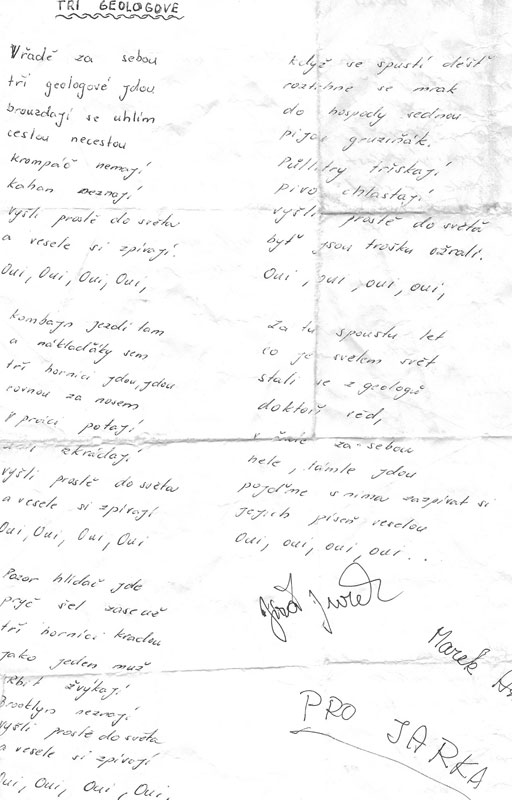 TŘI GEOLOGOVÉ
V řadě za sebou
tři geologové jdou
brouzdají se uhlím
cestou necestou
krompáč nemají
kahan neznají
vyšli prostě do světa
a vesele si zpívají.
Oui, Oui, Oui, Oui,
kombajn jezdí tam
a nákladáky sem
tři horníci jdou, jdou
rovnou za nosem
V práci potají
zkrádají
vyšli prostě do světa
a vesele si zpívají
Oui, Oui, Oui, Oui
Pozor hlídač jde
pryč šel zase už
tři horníci kradou
jako jeden muž
žvýkají
Brooklyn neznají
vyšli prostě do světa
a vesele si zpívají
Oui, Oui, Oui, Oui,
když se spustí déšť
roztrhne se mrak
do hospody sednou
pijou gruziňák.
Půllitry třískají
pivo chlastají
vyšli prostě do světa
byť jsou trošku ožralí.
Oui, oui, oui, oui,
za tu spoustu let
co je světem svět
stali se z geologů
doktoři věd,
v za sebou
hele, támhle jdou
pojďme s nima zazpívat si
jejich píseň veselou
Oui, oui, oui, oui..
Marek
PRO JARKA